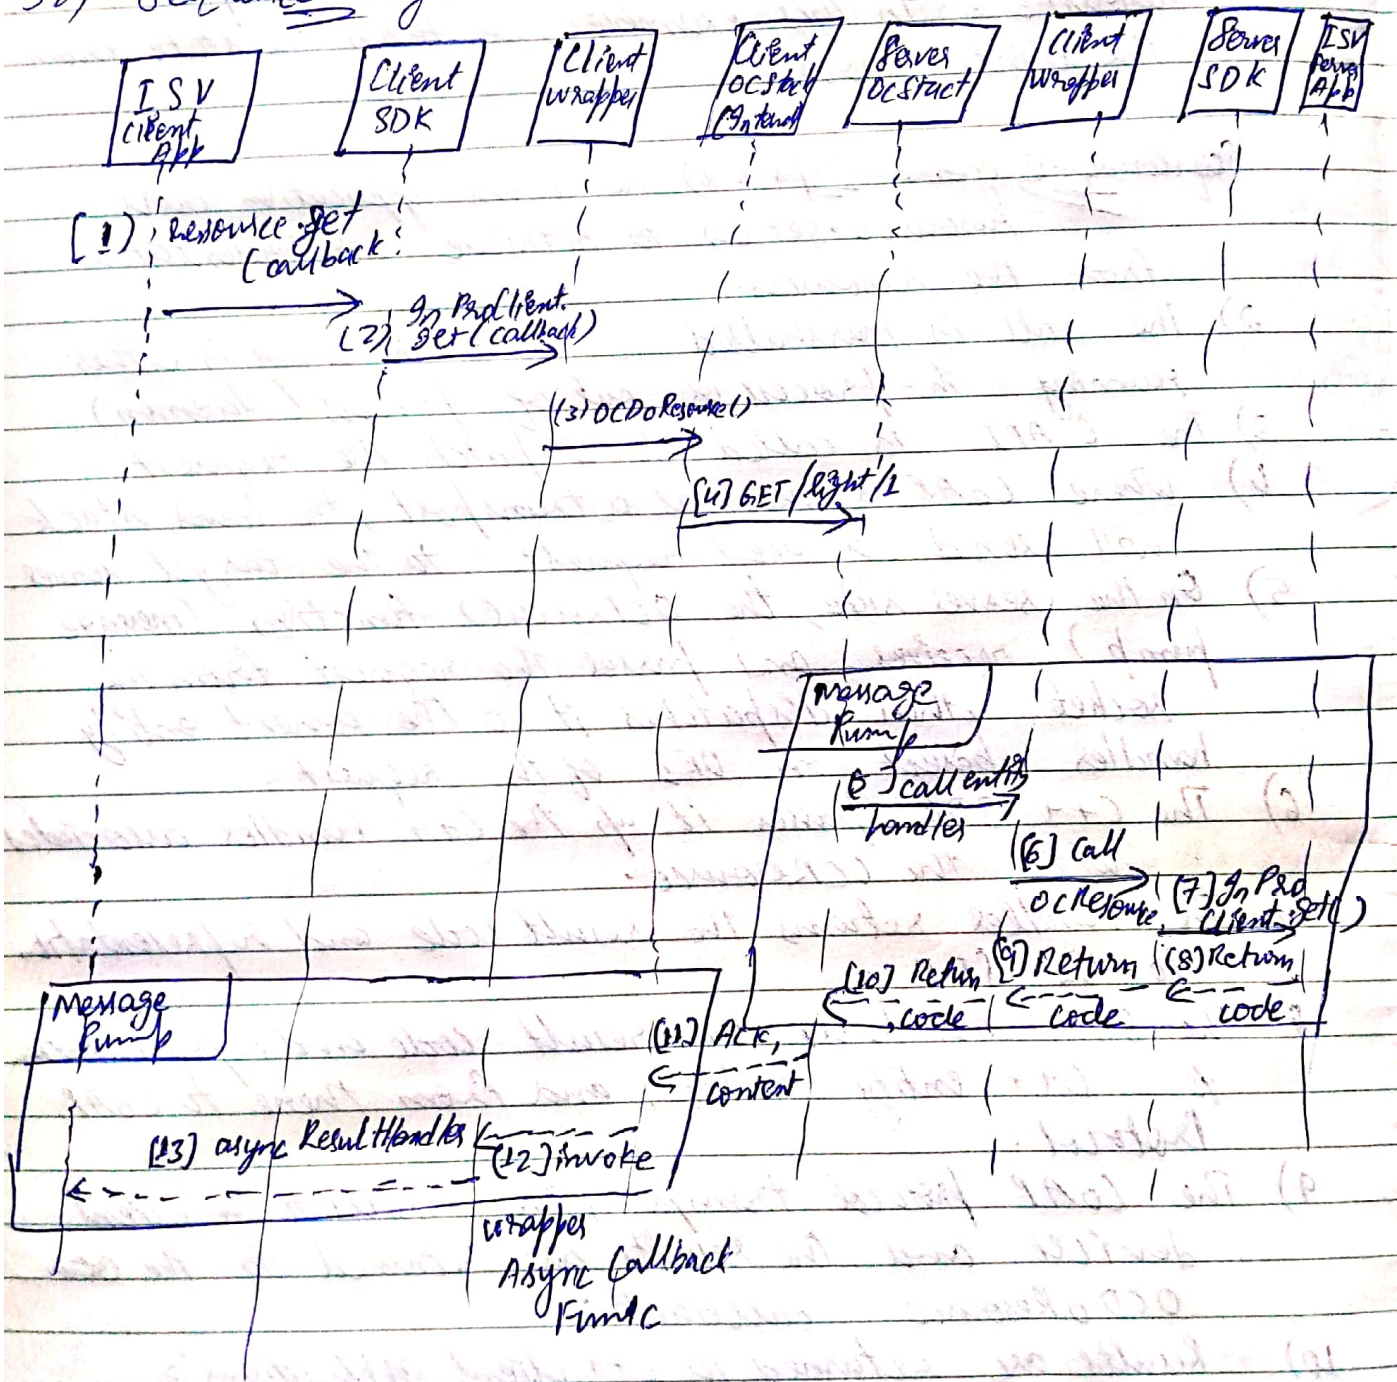 ISV
Client
App
Client
SDK
Client
wrapper
Client
OCStack
Server
OCStact
Client
wrapper
Server
SDK
ISV
Server
App
[1) Resource.get
(callback
(2) In ProClient.
get(callback)
(3) OCDoResource()
[4] GET /light/1
Message
Pump
] call entity
handler
[6] Call
OCResource
(7] In Pro
Client.get()
(8) Return
code
(9] Return
code
(10] Return
code
(11] ACK,
content
Message
Pump
(12] invoke
wrapper
Async Callback
Func
(13] async ResultHandler